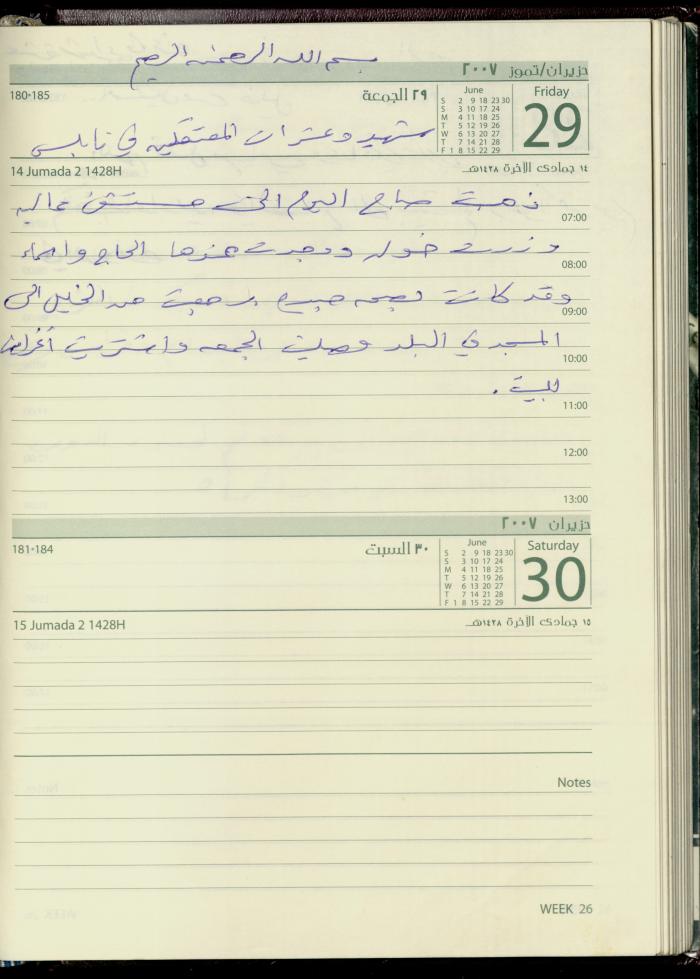 بسم الله الرحمن الرحيم
حزيران/تموز ٢٠٠٧
180-185
٢٩ الجمعة
June
S 2 9 18 23 30
S 3 10 17 24
M 4 11 18 25
T 5 12 19 26
W 6 13 20 27
T 7 14 21 28
F 1 8 15 22 29
Friday
29
شهيد وعشرات المعتقلين في نابلس
14 Jumada 2 1428H
١٤ جمادى الآخرة ١٤٢٨هـ
ذهبت صباح اليوم الى مستشفى عاليه
07:00
وزرت خوله ووجدت عندها الحاج واسماء
08:00
وقد كانت بصحه جيده رجعت من الخليل الى
09:00
المسجد في البلد وصليت الجمعه واشتريت أغراض
10:00
للبيت.
11:00
12:00
13:00
حزيران ٢٠٠٧
181-184
٣٠ السبت
June
S 2 9 18 23 30
S 3 10 17 24
M 4 11 18 25
T 5 12 19 26
W 6 13 20 27
T 7 14 21 28
F 1 8 15 22 29
Saturday
30
15 Jumada 2 1428H
١٥ جمادى الآخرة ١٤٢٨هـ
Notes
WEEK 26